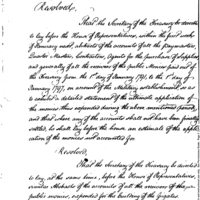 Resolved,
That the Secretary of the Treasury be directed
to lay before the House of Representatives, within the first week
of January next, abstracts of the accounts of all the paymasters,
Quarter Masters, Contractors, Agents for the purchase of Supplies,
and generally of all the receivers of the public Money from
the Treasury from the 1st of January 1791, to the 1st of Jan-
uary 1797, on account of the Military establishment, so as
to contain a detailed statement of the ultimate application of
the monies thus expended during the above mentioned period,
and that where any of the accounts shall not have been finally
settled, he shall lay before the house an estimate of the applica-
tion of the monies unaccounted for.
Resolved,
That the Secretary of the Treasury be directed
to lay, at the same time, before the House of Representatives,
similar Abstracts of the accounts of all the receivers of the
public monies, expended for building of the frigates.